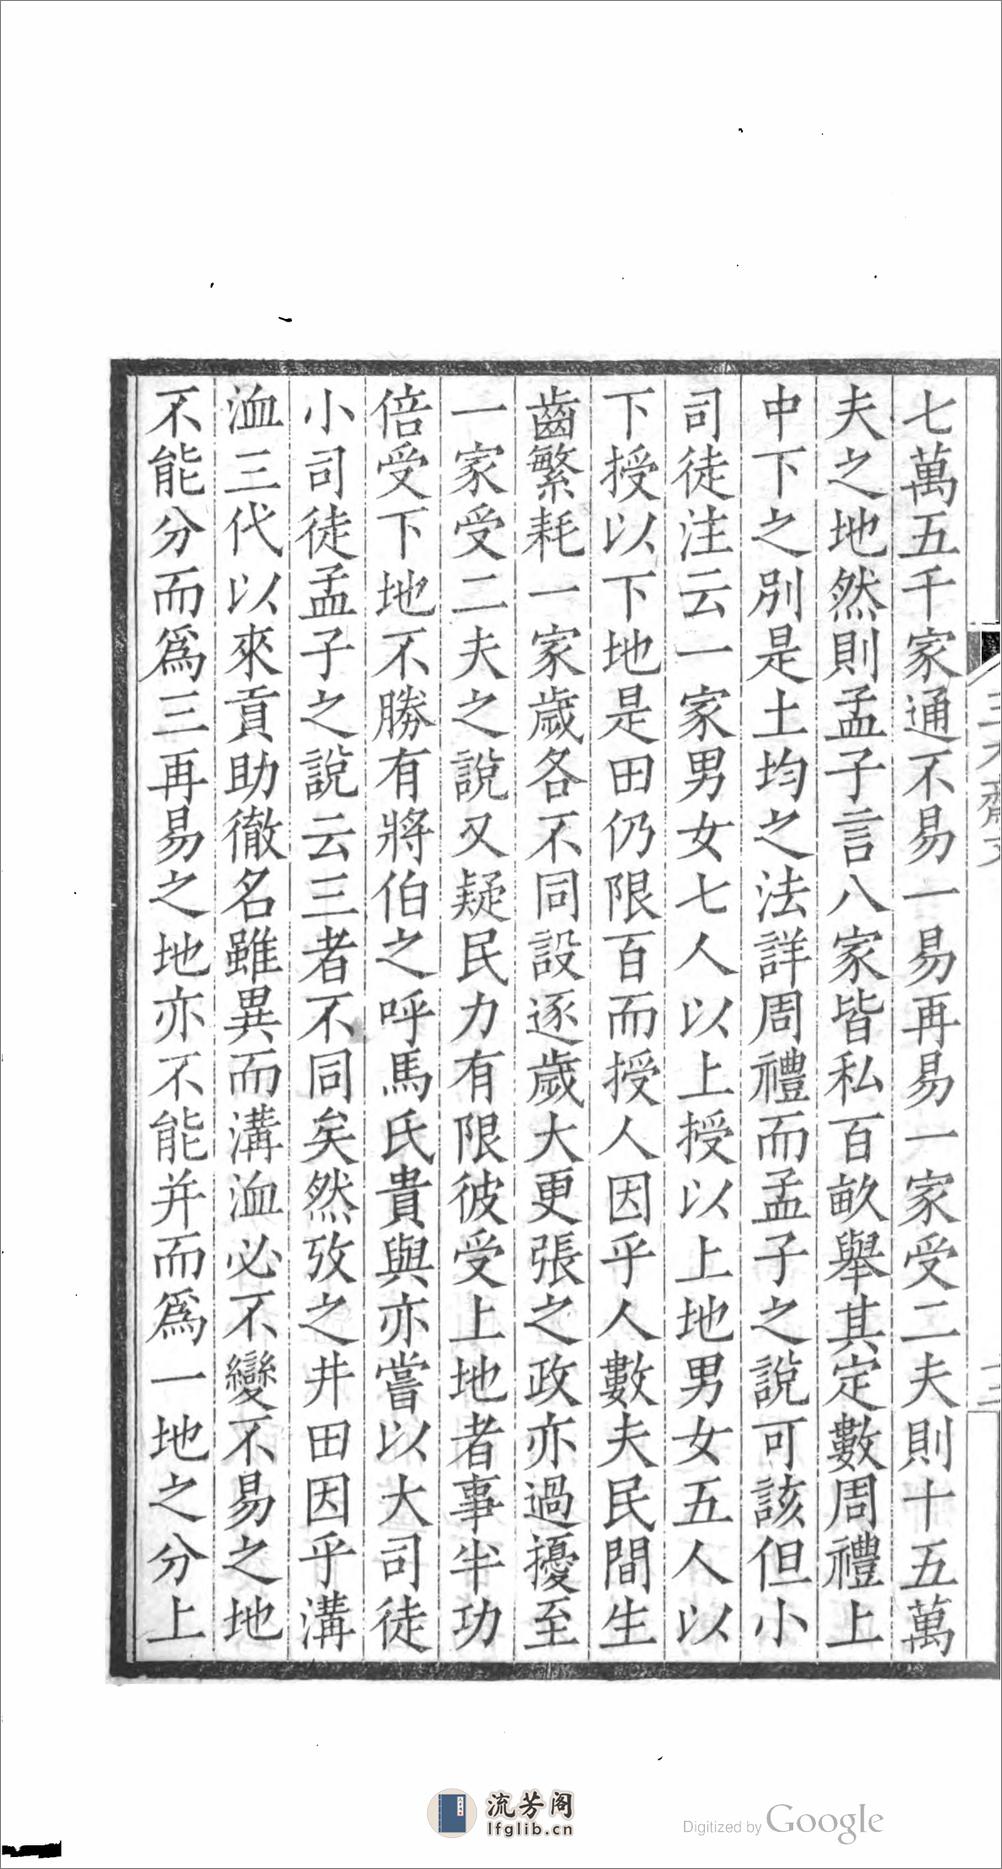 七萬五千家通不易一易再易一家受二夫則十五萬
夫之地然則孟子言八家皆私百畝舉其定數周禮上
中下之別是土均之法詳周禮而孟子之說可該但小
司徒注云一家男女七人以上授以上地男女五人以
下授以下地是田仍限百而授人因乎人數夫民間生
齒繁耗一家歲各不同設逐歲大更張之政亦過擾至
一家受二夫之說又疑民力有限彼受上地者事半功
倍受下地不勝有將伯之呼馬氏貴與亦嘗以大司徒
小司徒孟子之說云三者不同矣然攷之井田因乎溝
洫三代以來貢助徹名雖異而溝洫必不變不易之地
不能分而爲三再易之地亦不能并而爲一地之分上
流芳阁
lfglib.cn
Digitized by Google